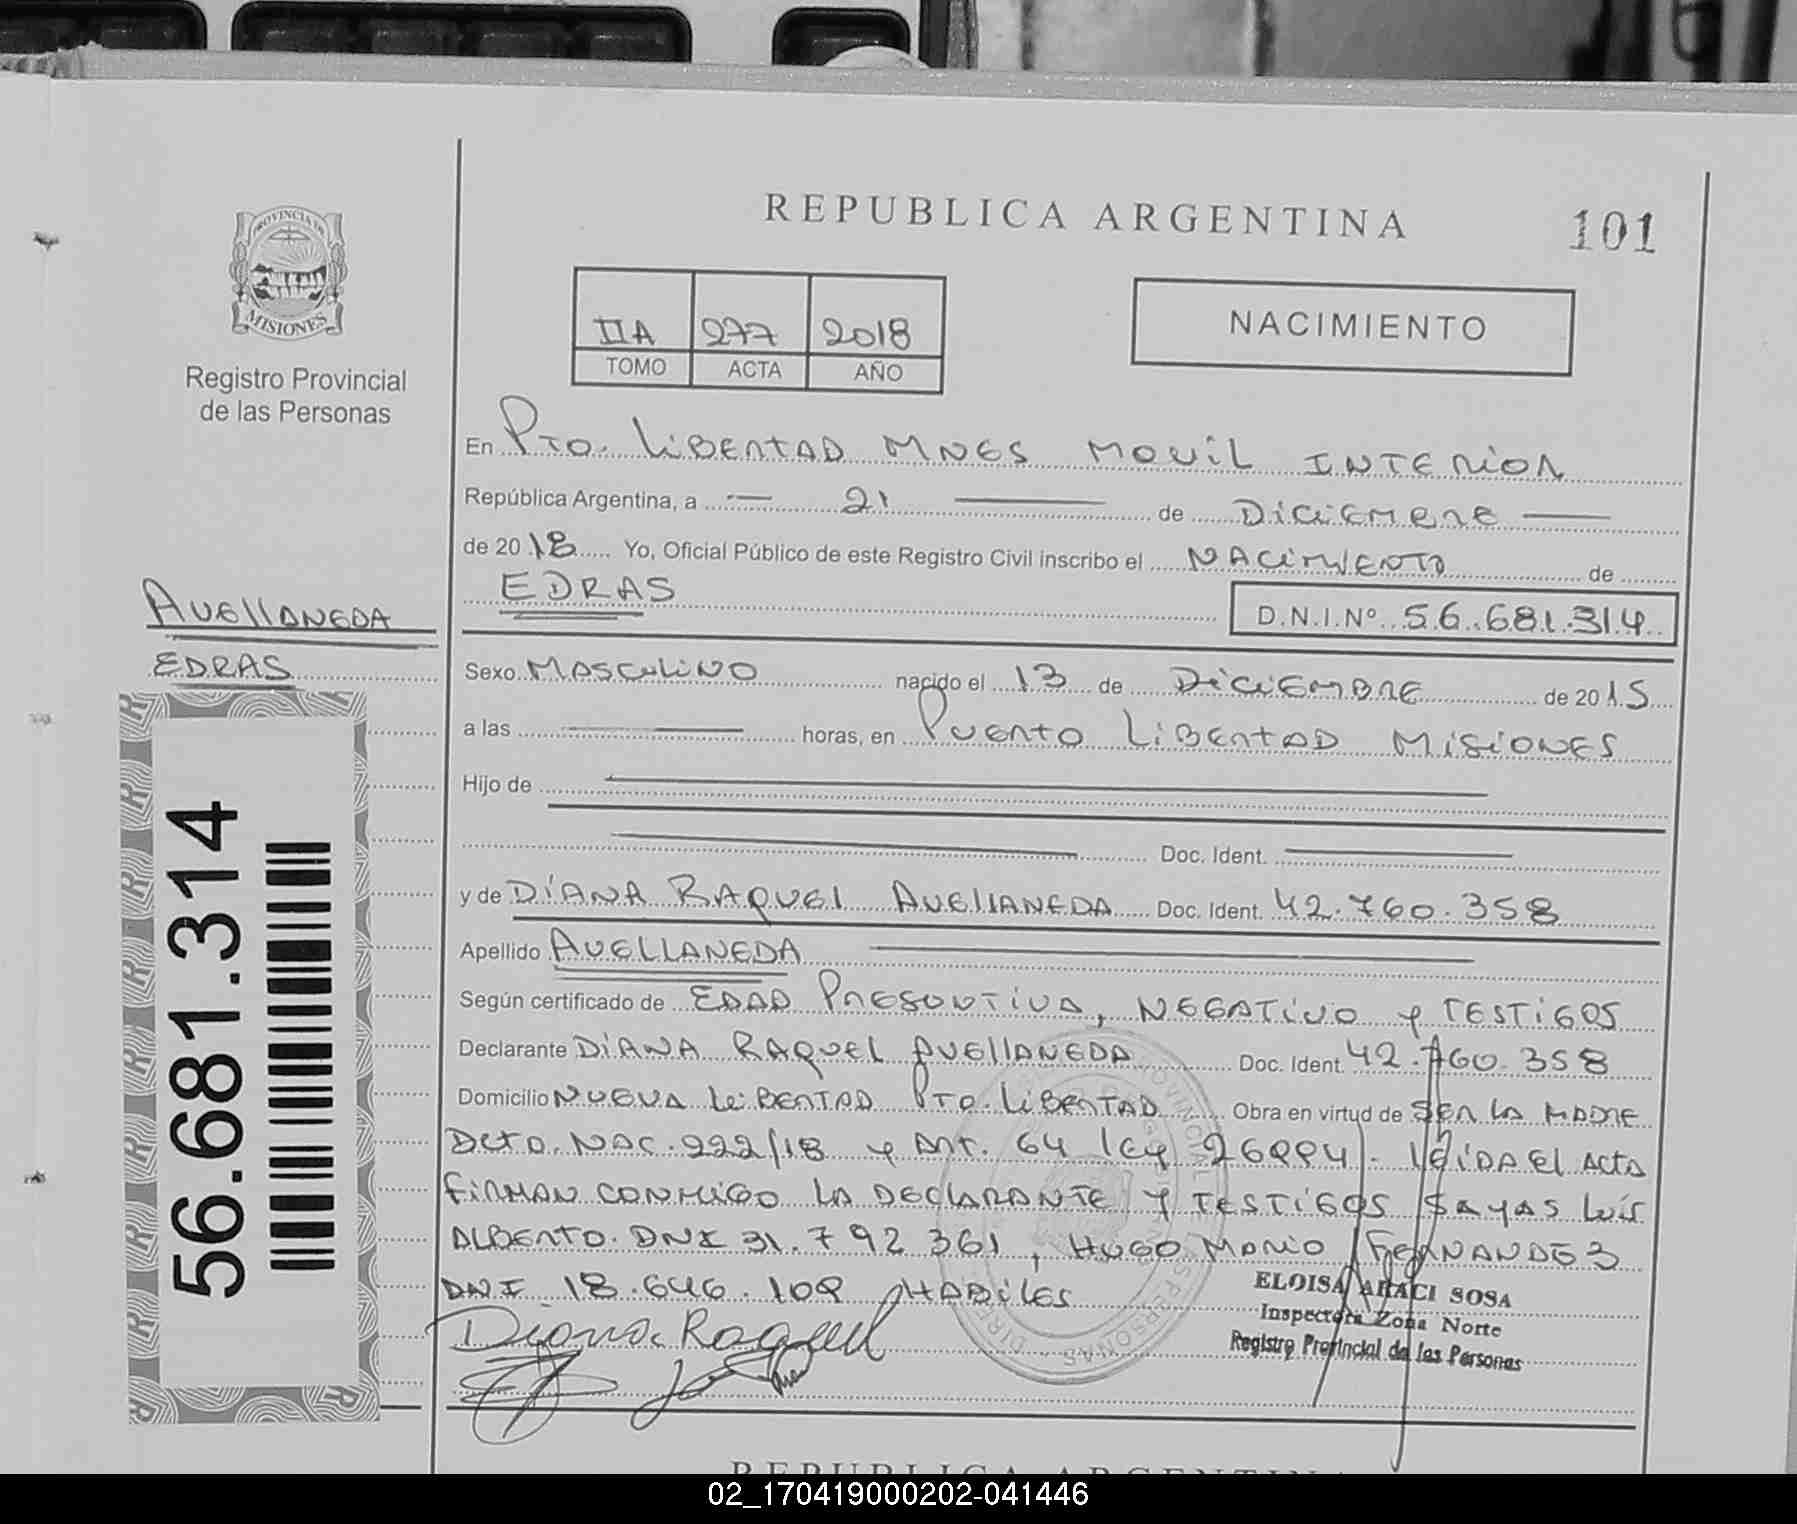 REPUBLICA ARGENTINA
101
PROVINCIA DE
MISIONES
Registro Provincial
de las Personas
IIA 277 2018
TOMO ACTA AÑO
NACIMIENTO
En Pto. Libertad Mnes Movil Interior
República Argentina, a 21 de Diciembre
de 2018 Yo, Oficial Público de este Registro Civil inscribo el Nacimiento de
EDRAS
D.N.I.Nº 56.681.314
AVELLANEDA
EDRAS
Sexo Masculino nacido el 13 de Diciembre de 2015
a las horas, en Puerto Libertad Misiones
Hijo de
Doc. Ident.
y de DIANA RAQUEL AVELLANEDA Doc. Ident. 42.760.358
Apellido AVELLANEDA
Según certificado de EDAD Presuntiva, Negativo y Testigos
Declarante DIANA RAQUEL AVELLANEDA Doc. Ident. 42.760.358
Domicilio Nueva Libertad Pto. Libertad Obra en virtud de ser la madre
Dcto. Nac. 222/18 y Art. 64 ley 26994. Leida el acta
firman conmigo la declarante y testigos Sayas Luis
Alberto. DNI 31.792.361, Hugo Mario Fernandez
DNI 18.646.109 Habiles
ELOISA ARACI SOSA
Inspectora Zona Norte
Registro Provincial de las Personas
Diana Raquel
56.681.314
REPUBLICA ARGENTINA
02_170419000202-041446